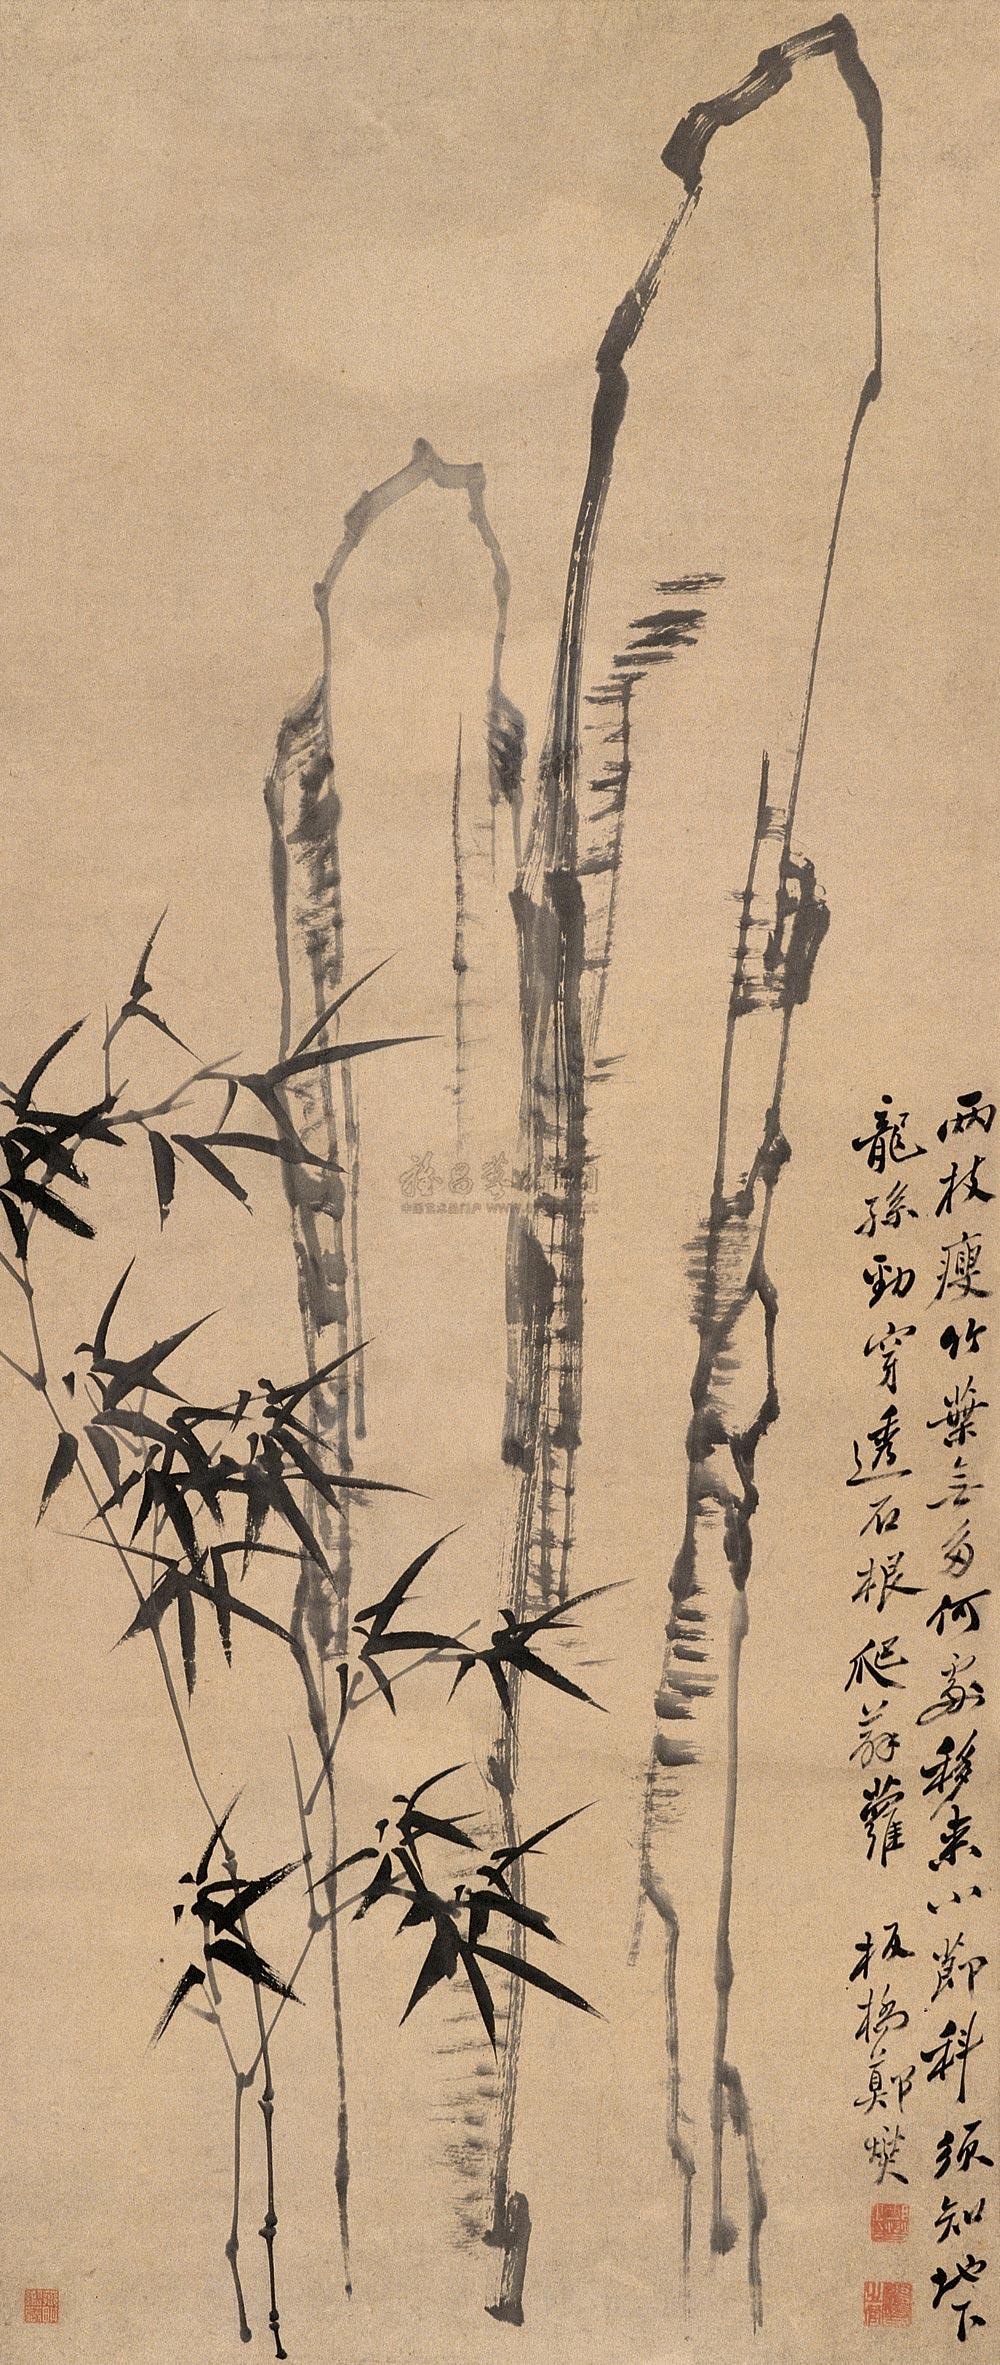 兩枝瘦竹葉無多何處移來小節科須知地下
龍孫勁穿透石根爬薜蘿 板橋鄭燮